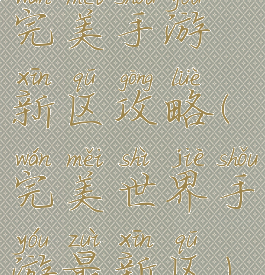 wán měi shǒu yóu
完美手游
xīn qū gōng lüè
新区攻略(
wán měi shì jiè shǒu
完美世界手
yóu zuì xīn qū
游最新区)